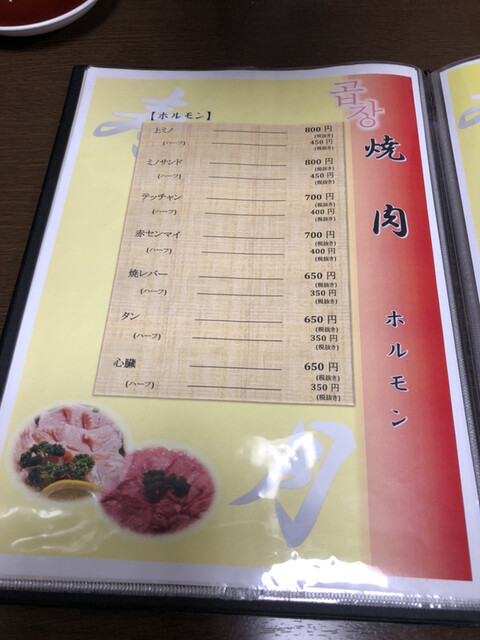 곱창
焼肉 ホルモン
【ホルモン】
上ミノ 800円
(税抜き)
(ハーフ) 450円
(税抜き)
ミノサンド 800円
(税抜き)
(ハーフ) 450円
(税抜き)
テッチャン 700円
(税抜き)
(ハーフ) 400円
(税抜き)
赤センマイ 700円
(税抜き)
(ハーフ) 400円
(税抜き)
焼レバー 650円
(税抜き)
(ハーフ) 350円
(税抜き)
タン 650円
(税抜き)
(ハーフ) 350円
(税抜き)
心臓 650円
(税抜き)
(ハーフ) 350円
(税抜き)